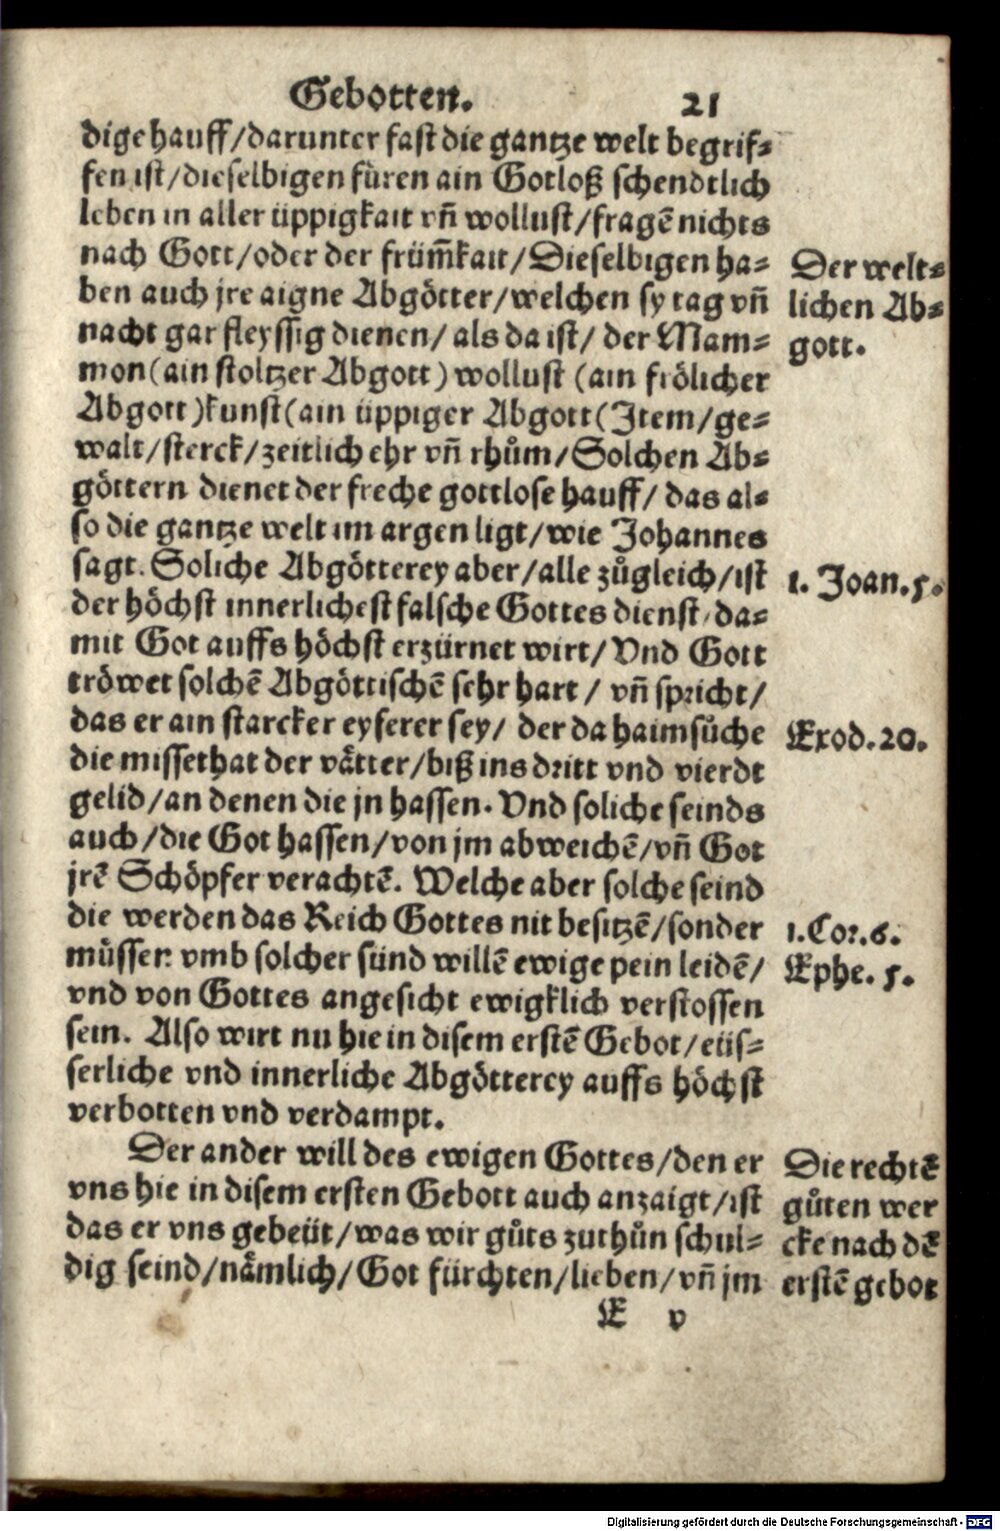 Gebotten. 21
dige hauff/darunter fast die gantze welt begrif⸗
fen ist/dieselbigen füren ain Gotloß schendtlich
leben in aller üppigkait vn̄ wollust/fragē nichts
nach Gott/oder der früm̄kait/Dieselbigen ha⸗
ben auch jre aigne Abgötter/welchen sy tag vn̄
nacht gar fleyssig dienen/ als da ist/ der Mam⸗
mon(ain stoltzer Abgott) wollust (ain frölicher
Abgott)kunst(ain üppiger Abgott(Item/ge⸗
walt/sterck/zeitlich ehr vn̄ rhům/Solchen Ab⸗
göttern dienet der freche gottlose hauff/ das al⸗
so die gantze welt im argen ligt/wie Johannes
sagt. Soliche Abgötterey aber/alle zůgleich/ist
der höchst innerlichest falsche Gottes dienst/da⸗
mit Got auffs höchst erzürnet wirt/ Vnd Gott
tröwet solchē Abgöttischē sehr hart / vn̄ spricht/
das er ain starcker eyferer sey/ der da haimsůche
die missethat der vätter/biß ins dritt vnd vierdt
gelid/an denen die jn hassen. Vnd soliche seinds
auch/die Got hassen/von jm abweichē/vn̄ Got
jrē Schöpfer verachtē. Welche aber solche seind
die werden das Reich Gottes nit besitzē/sonder
müssen vmb solcher sünd willē ewige pein leidē/
vnd von Gottes angesicht ewigklich verstossen
sein. Also wirt nu hie in disem erstē Gebot/eüs⸗
serliche vnd innerliche Abgötterey auffs höchst
verbotten vnd verdampt.
Der ander will des ewigen Gottes/den er
vns hie in disem ersten Gebott auch anzaigt/ist
das er vns gebeüt/was wir gůts zuthůn schul⸗
dig seind/nämlich/Got fürchten/lieben/vn̄ jm
E v
Der welt⸗
lichen Ab⸗
gott.
1. Joan.5.
Exod.20.
1.Cor.6.
Ephe. 5.
Die rechtē
gůten wer
cke nach dē
erstē gebot
Digitalisierung gefördert durch die Deutsche Forschungsgemeinschaft - DFG